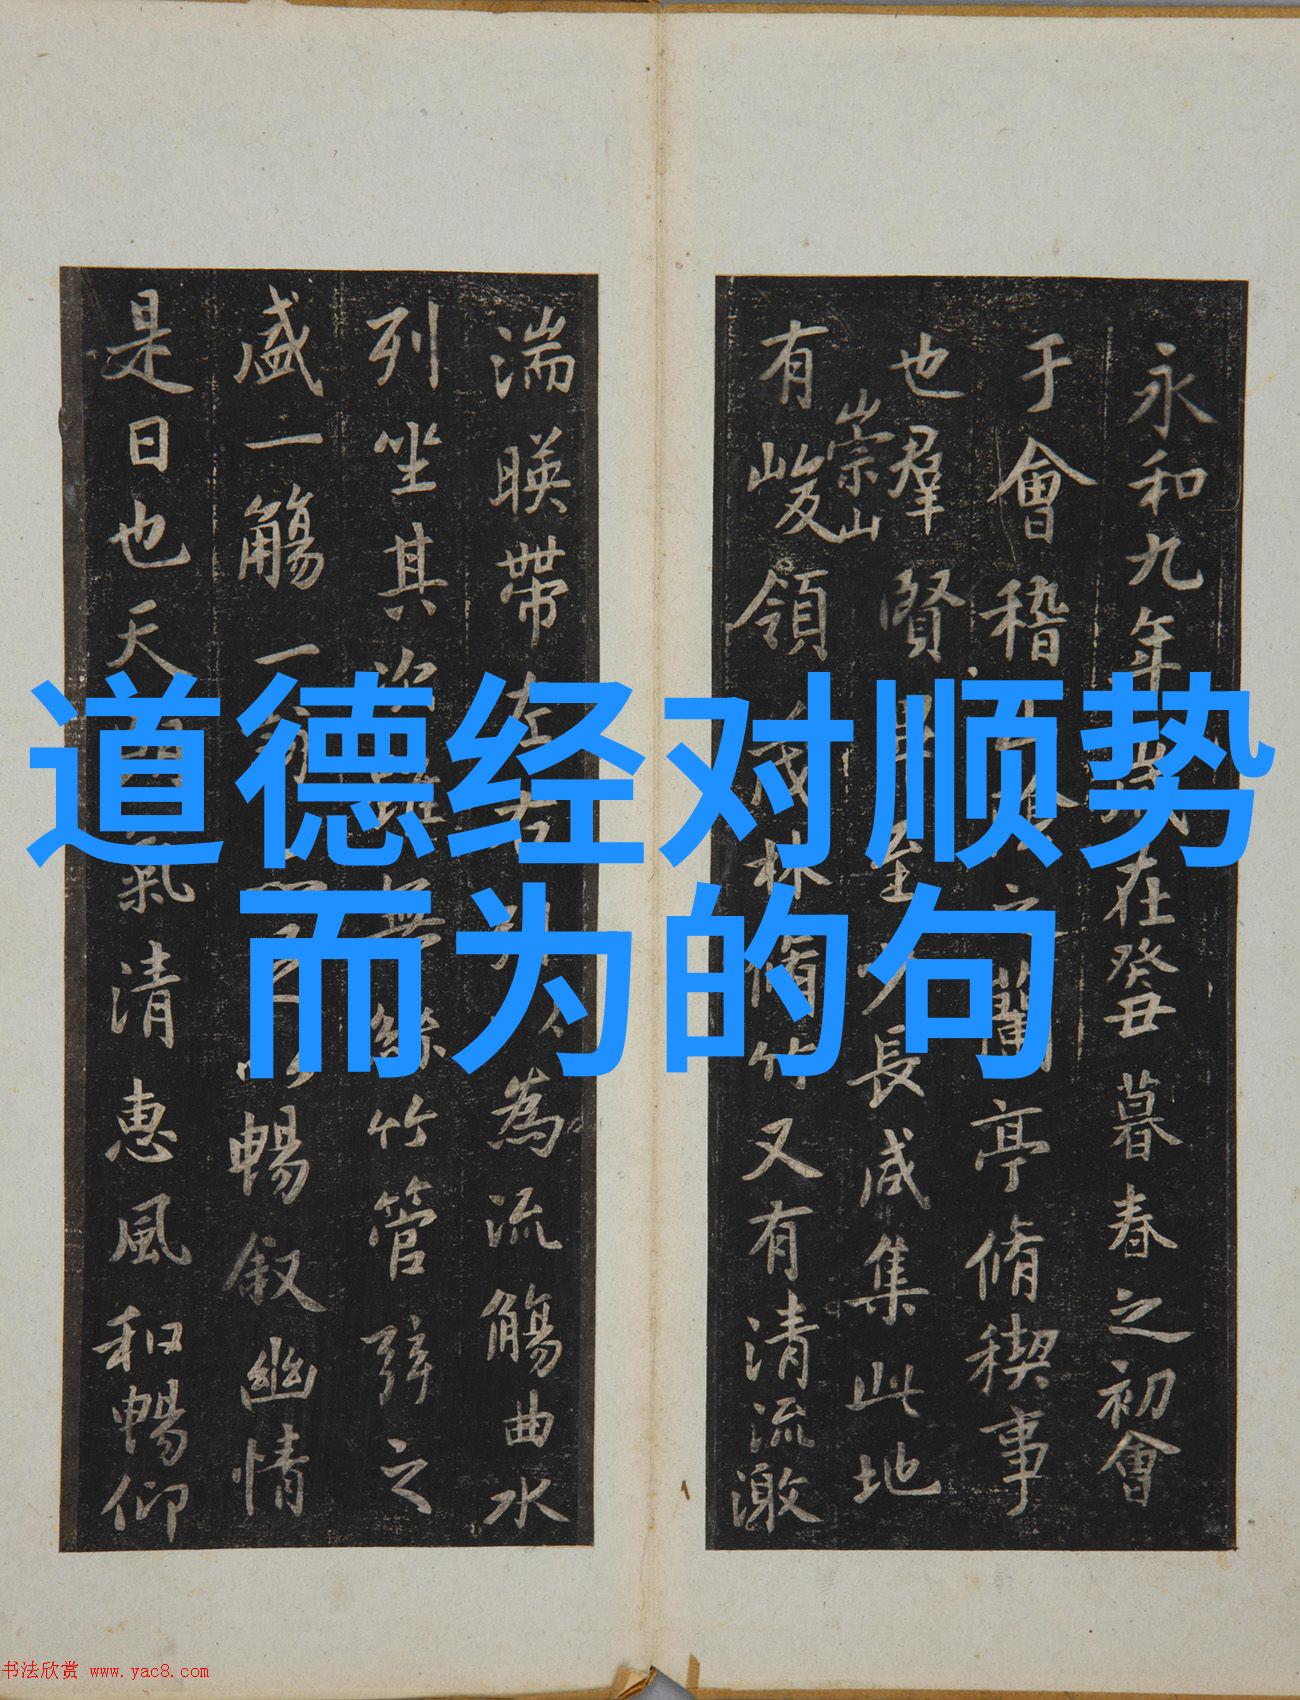 道德经对顺势
而为的句
永和九年歲在癸丑暮春之初會
于會稽山之蘭亭脩禊事
也羣賢畢至少長咸集此地
有崇山峻領茂林脩竹又有清流激
湍暎帶左右為流觴曲水
列坐其次雖無絲竹管弦之
盛一觴一暢叙幽情
是日也天氣清惠風和暢仰
书法欣赏 www.yac8.com